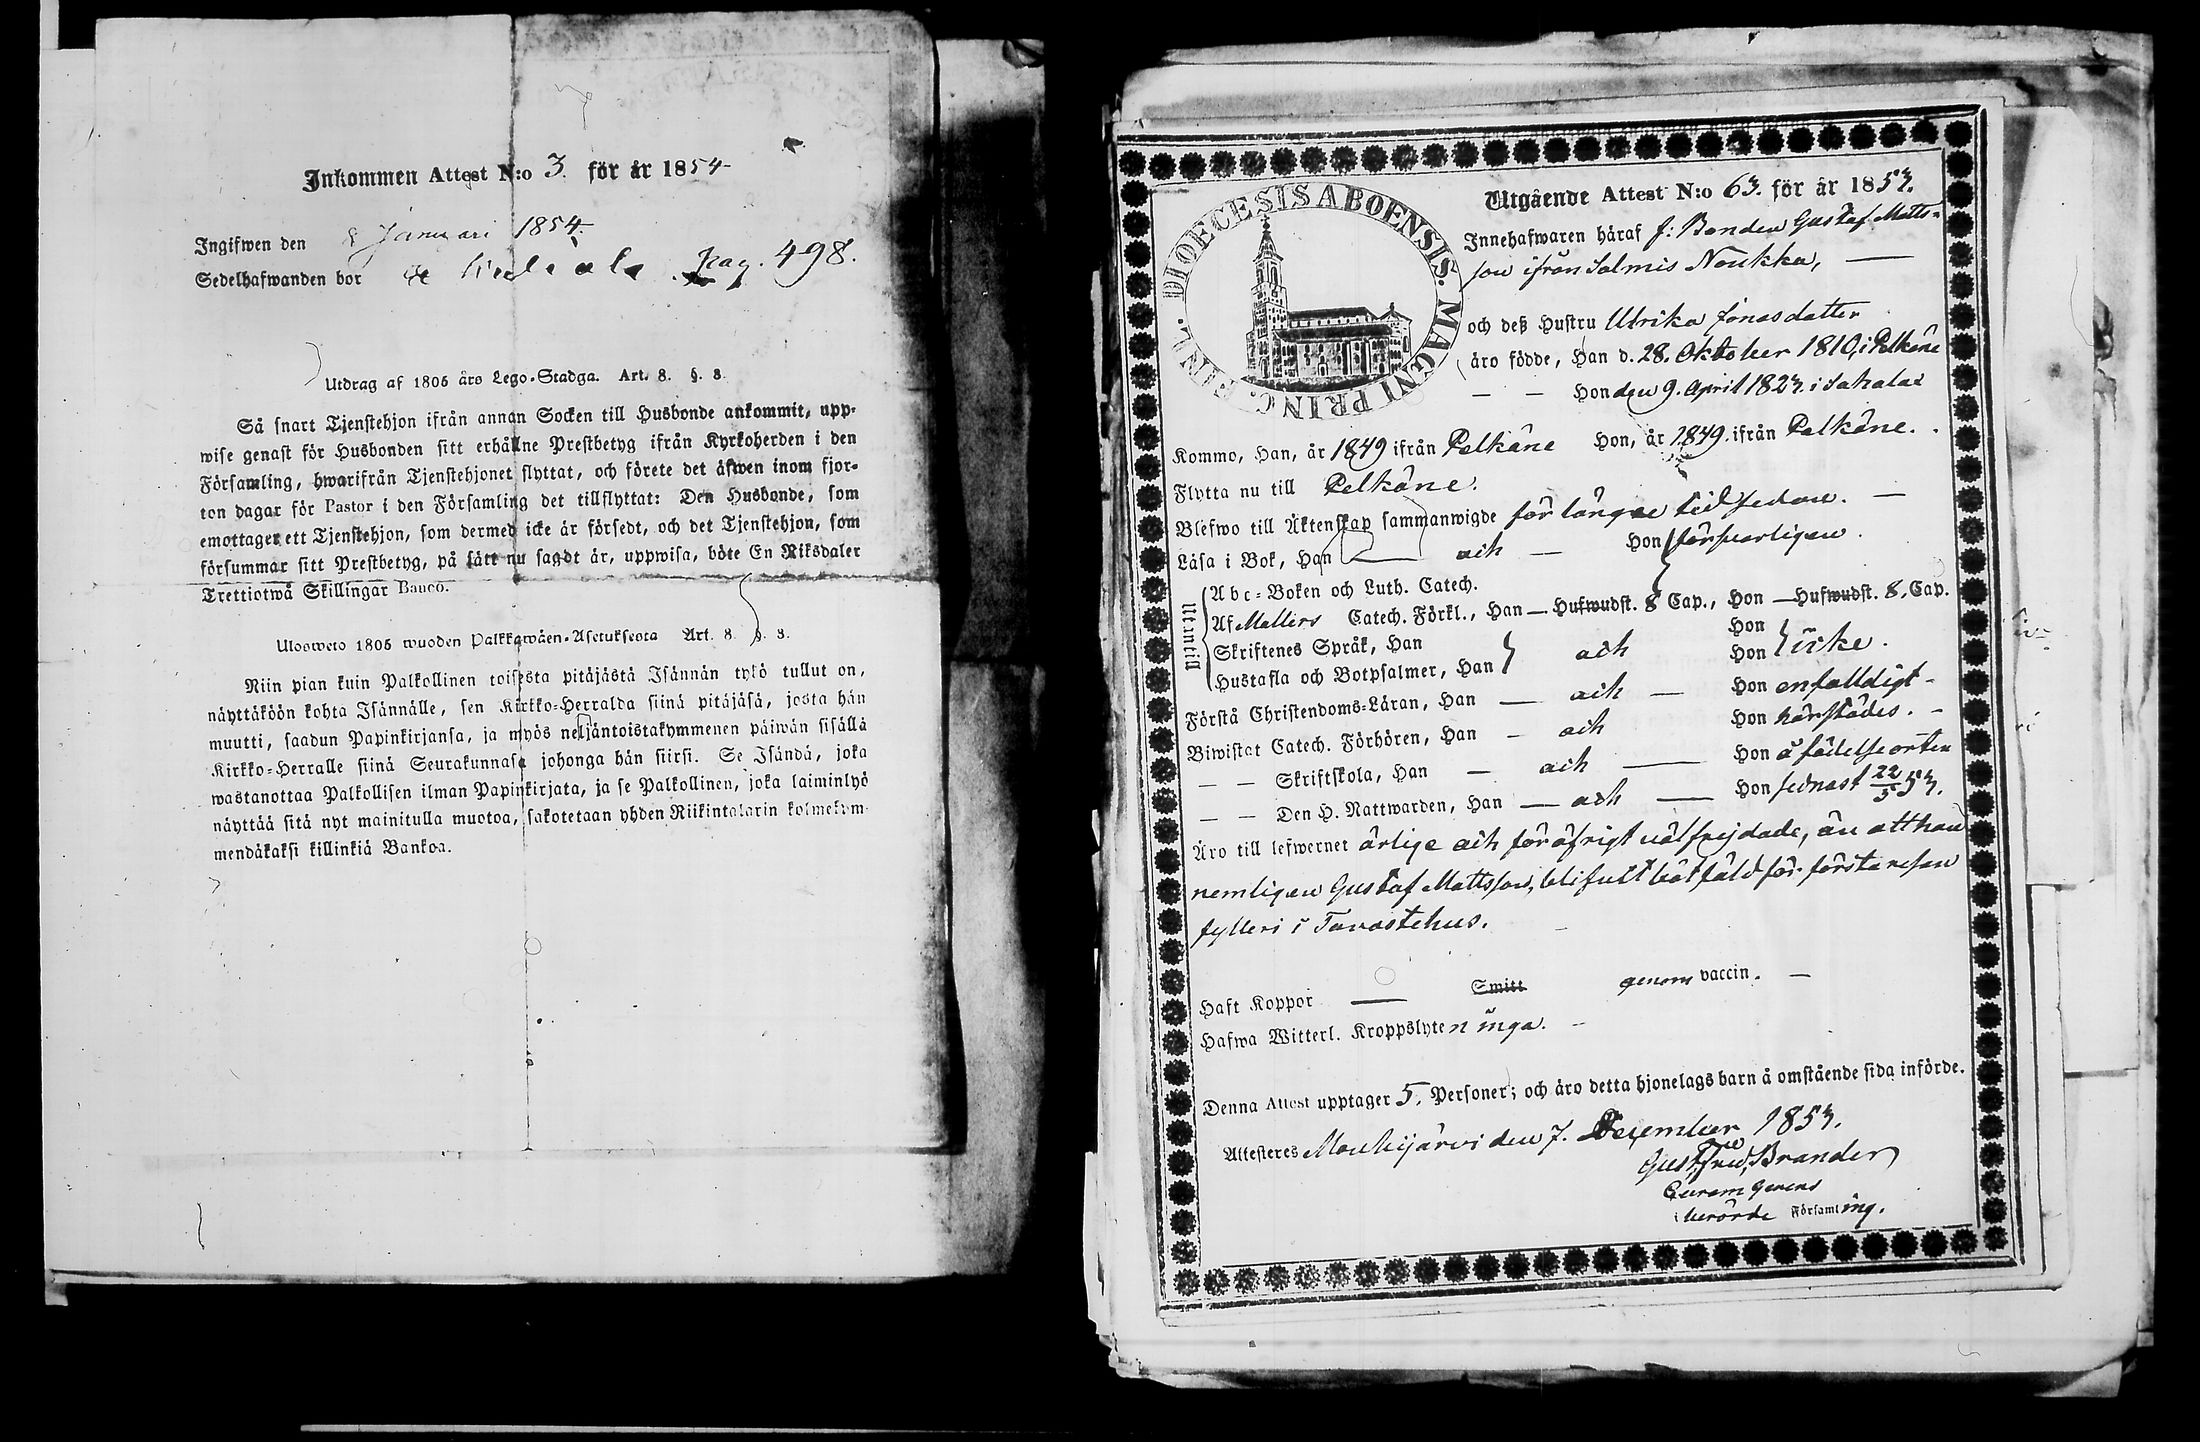 Inkommen Attest N:o 3. för år 1854
Ingifwen den 8 Januari 1854.
Sedelhafwanden bor pag. 498.
Utdrag af 1805 års Lego-Stadga. Art. 8. §. 8.
Så snart Tjenstehjon ifrån annan Socken till Husbonde ankommit, upp-
wise genast för Husbonden sitt erhållne Prestbetyg ifrån Kyrkoherden i den
Församling, hwarifrån Tjenstehjonet flyttat, och förete det äfwen inom fjor-
ton dagar för Pastor i den Församling det tillflyttat: Den Husbonde, som
emottager ett Tjenstehjon, som dermed icke är försedt, och det Tjenstehjon, som
försummar sitt Prestbetyg, på sätt nu sagdt är, uppwisa, böte En Riksdaler
Trettiotwå Skillingar Banco.
Ulosweto 1805 wuoden Palkkawäen-Asetuksesta Art. 8. §. 8.
Niin pian kuin Palkollinen toisesta pitäjästä Isännän tykö tullut on,
näyttäköön kohta Isännälle, sen Kirkko-Herralda siinä pitäjäsä, josta hän
muutti, saadun Papinkirjansa, ja myös neljäntoistakymmenen päiwän sisällä
Kirkko-Herralle siinä Seurakunnasa johonga hän siirsi. Se Isändä, joka
wastanottaa Palkollisen ilman Papinkirjata, ja se Palkollinen, joka laiminlyö
näyttää sitä nyt mainitulla muotoa, sakotetaan yhden Riikintalarin kolmekym-
mendäkaksi killinkiä Bankoa.
DIOECESIS ABOENSIS. MAGNI PRINC. FINL.
Utgående Attest N:o 63. för år 1853.
Innehafwaren häraf f: Bonden Gustaf Matts-
son ifrån Salmis Noukka,
och deß Hustru Ulrika Jonasdotter
äro födde, Han d. 28. Oktober 1810, i Pelkäne
— — Hon den 9. April 1823. i Sahalax
Kommo, Han, år 1849 ifrån Pelkäne Hon, år 1849. ifrån Pelkäne.
Flytta nu till Pelkäne.
Blefwo till Äktenskap sammanwigde för längre tid sedan. —
Läsa i Bok, Han — och — Hon försvarligen.
Utantill
Abc-Boken och Luth. Catech.
Af Mallers Catech. Förkl., Han — Hufwudst. 8 Cap., Hon — Hufwudst. 8. Cap.
Skriftenes Språk, Han Hon
Hustafla och Botpsalmer, Han och Hon icke.
Förstå Christendoms-Läran, Han — och — Hon enfalldigt
Biwistat Catech. Förhören, Han — och Hon härstädes. —
— — Skriftskola, Han — och — Hon å födelseorten
— — Den H. Nattwarden, Han — och — Hon sednast 22/5 53.
Äro till lefwernet ärlige och föröfrigt välfrejdade, än att han
nemligen Gustaf Mattsson, blifvit bötfäld för första resan
fylleri i Tavastehus.
Haft Koppor — Smitt genom vaccin. —
Hafwa Witterl. Kroppslyten inga. —
Denna Attest upptager 5. Personer; och äro detta hjonelags barn å omstående sida införde.
Attesteras Mouhijärvi den 7. December 1853.
Gust. Fred. Brander
Curam gerens
i berörde Församling.